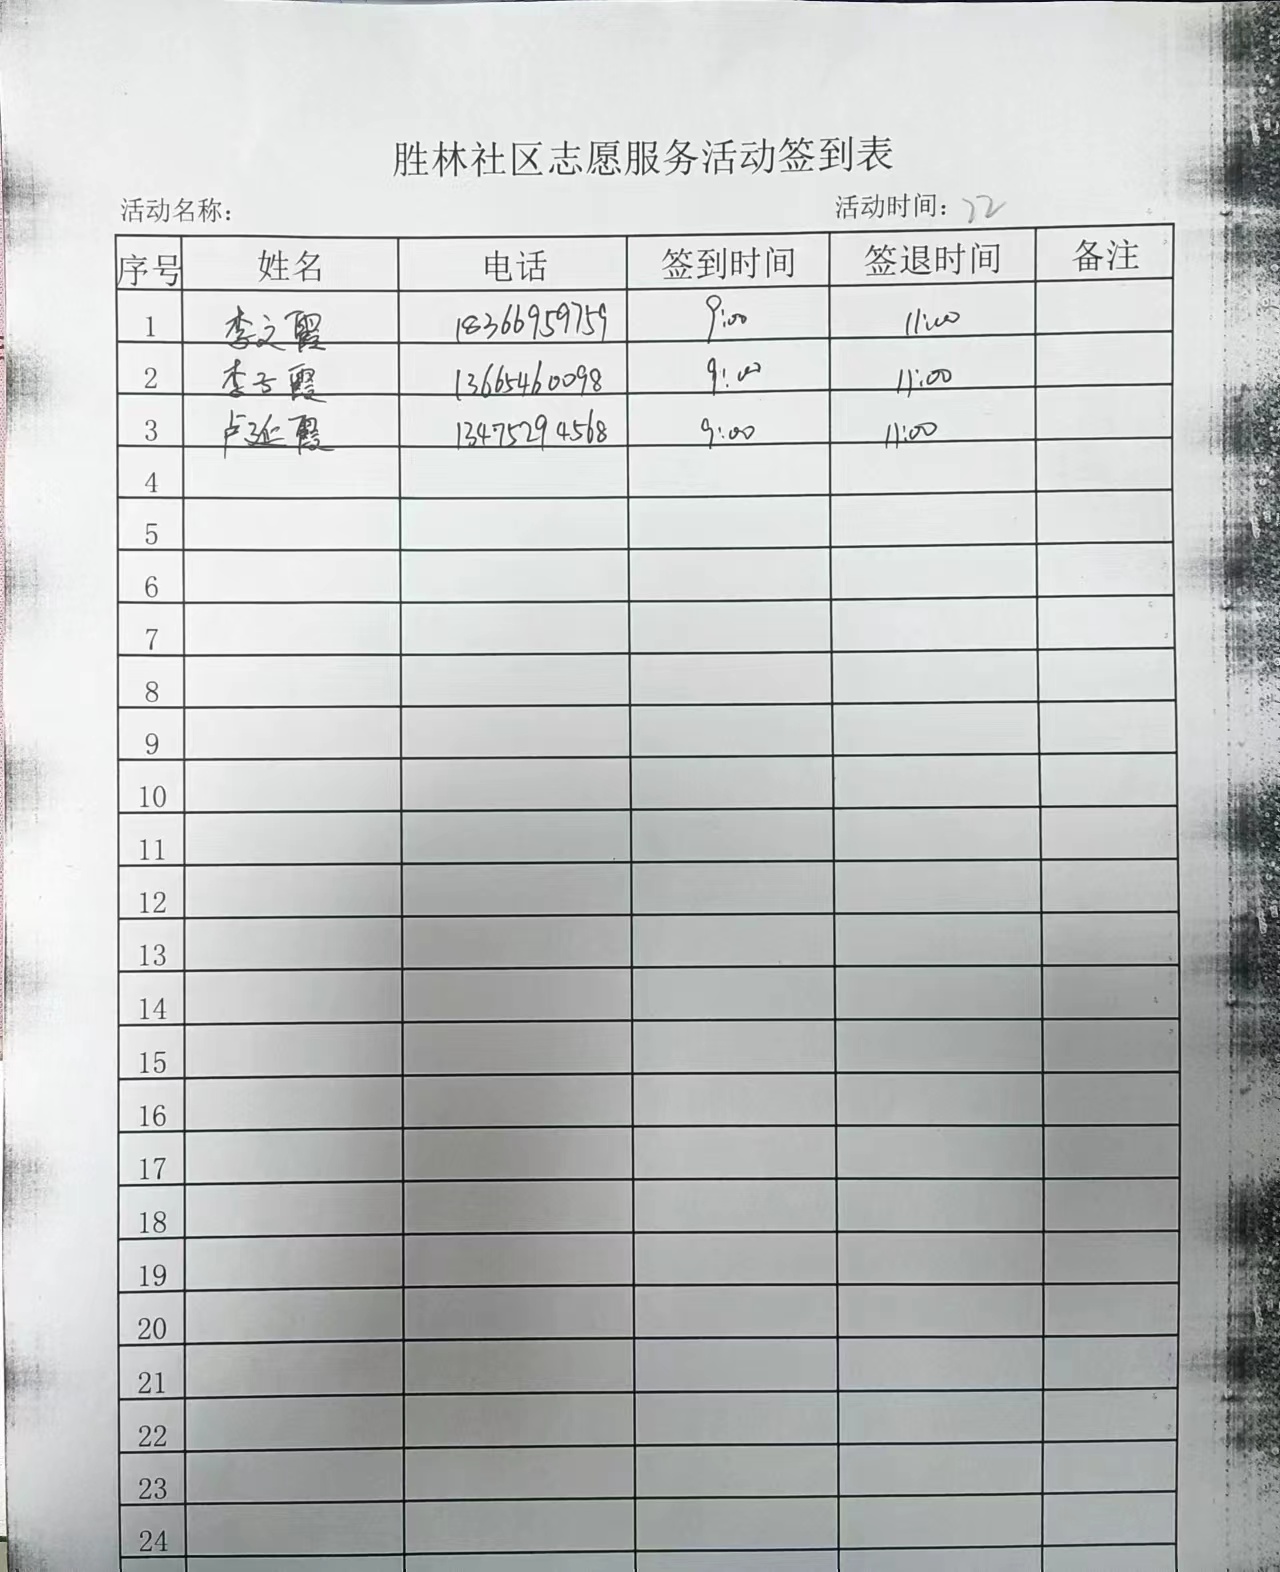 胜林社区志愿服务活动签到表
活动名称： 活动时间：22
序号 姓名 电话 签到时间 签退时间 备注
1 李文霞 18366959759 9:00 11:00
2 李云霞 13665460098 9:00 11:00
3 卢延霞 13475294568 9:00 11:00
4
5
6
7
8
9
10
11
12
13
14
15
16
17
18
19
20
21
22
23
24